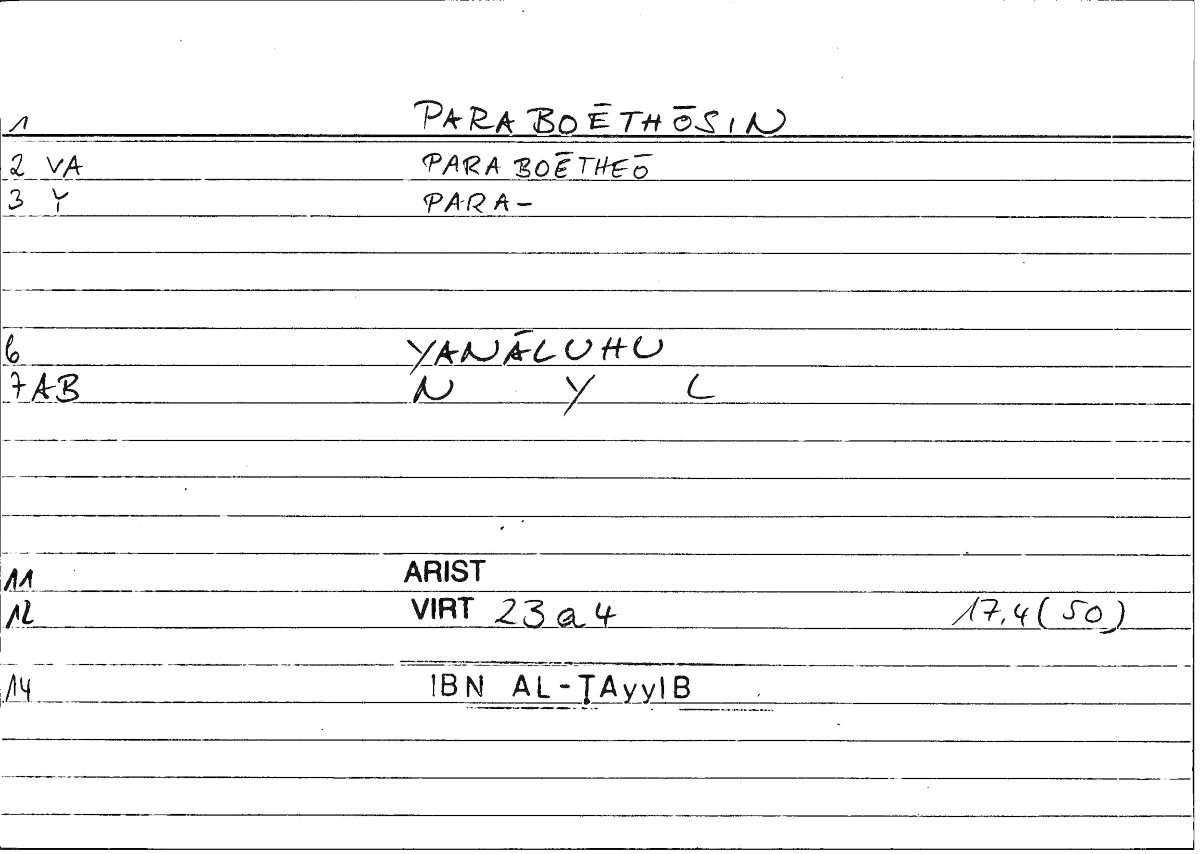 1 PARABOĒTHŌSIN
2 VA PARABOĒTHEŌ
3 Y PARA-
6 YANĀLUHU
7AB N Y L
11 ARIST
12 VIRT 23a4 17,4(50)
14 IBN AL-ṬAyyIB